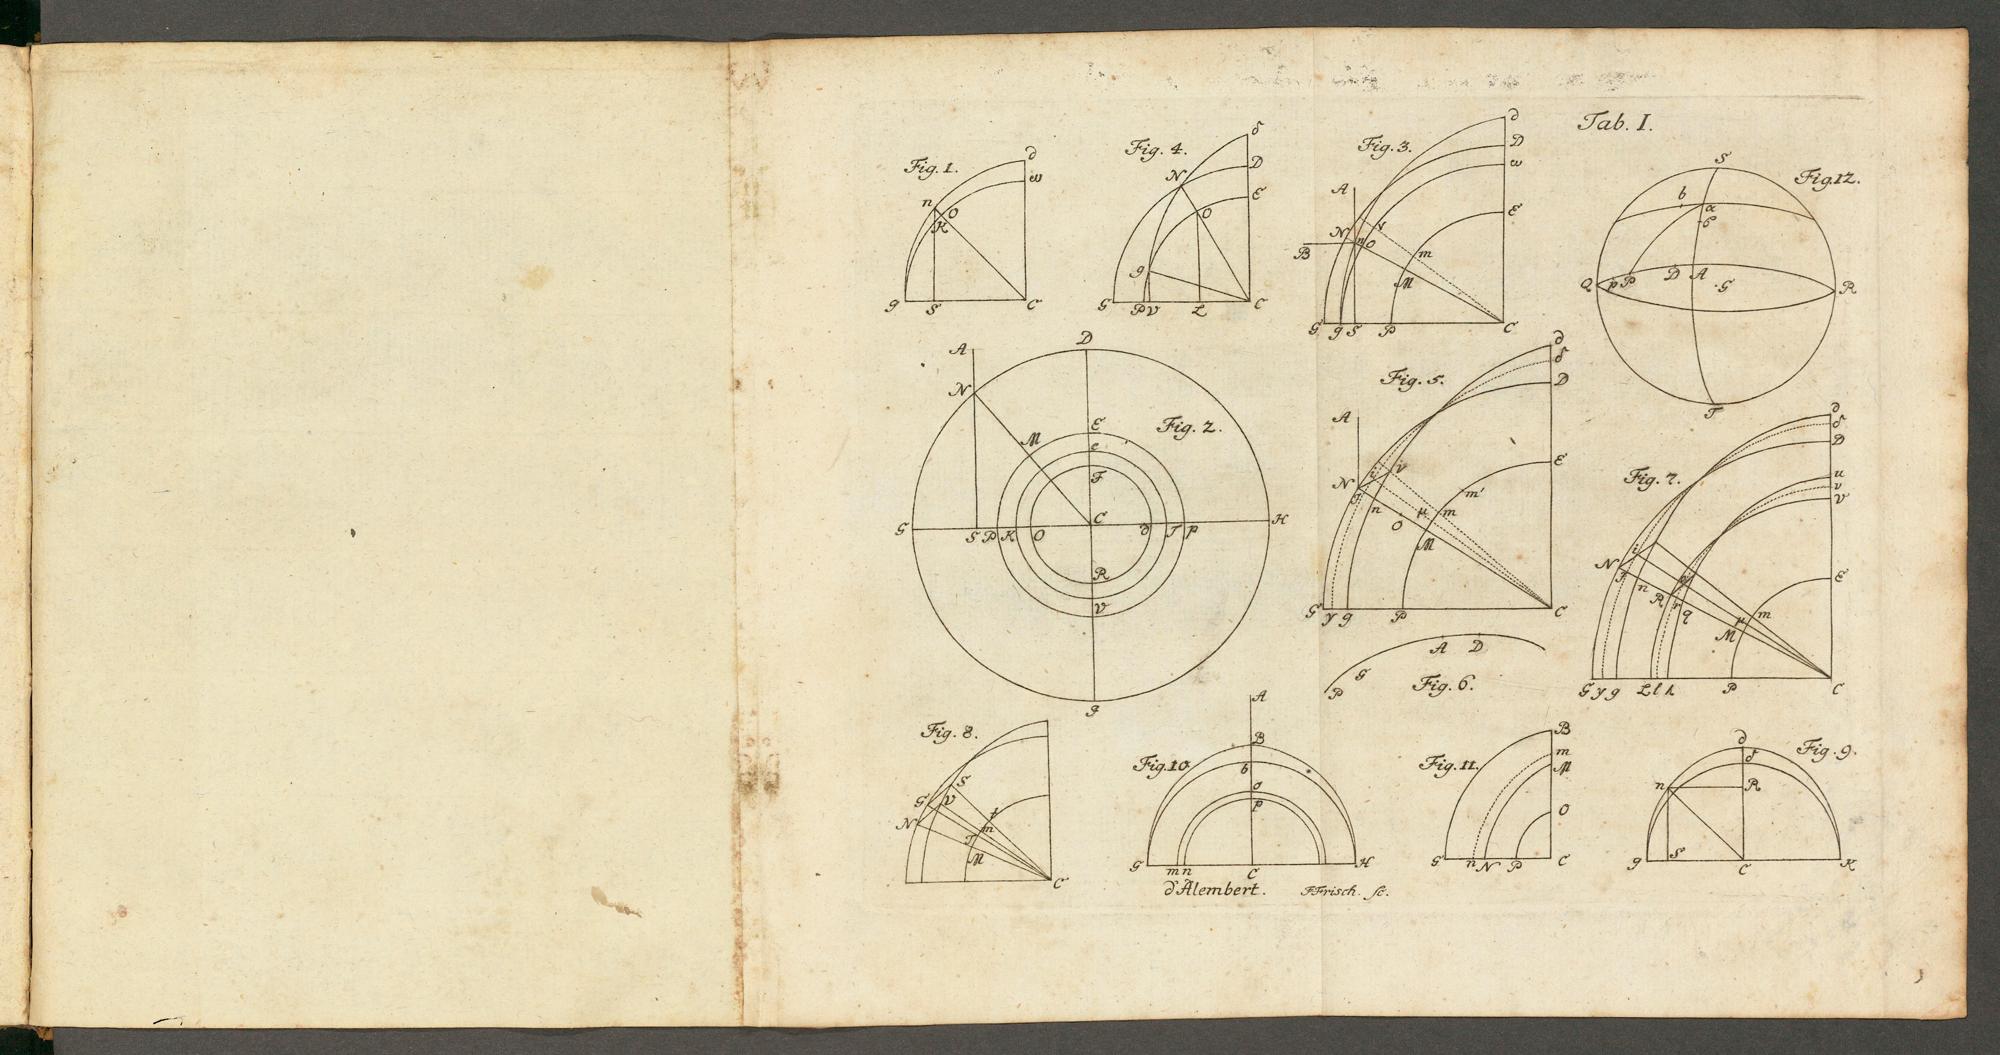 Tab. I.
Fig. 1.
d
w
n
O
K
g
S
C
Fig. 4.
δ
D
N
E
O
g
G
P
V
L
C
Fig. 3.
d
D
w
A
N
B
n
O
E
m
M
G
g
S
P
C
Fig. 12.
S
b
a
Q
p
P
D
A
G
R
T
Fig. 2.
A
D
N
M
E
e
F
G
S
P
K
O
C
d
T
p
H
R
V
g
Fig. 5.
d
δ
D
A
N
i
v
n
O
μ
m
m'
M
E
G
y
g
P
C
Fig. 7.
d
δ
D
u
v
V
N
i
n
R
r
q
M
μ
m
E
G
y
g
L
l
h
P
C
Fig. 6.
P
G
A
D
Fig. 8.
S
G
V
N
t
m
T
M
C
Fig. 10.
A
B
b
o
p
G
m
n
C
H
Fig. 11.
B
m
M
O
G
n
N
P
C
Fig. 9.
d
δ
n
R
g
S
C
K
d'Alembert.
FFrisch. sc.